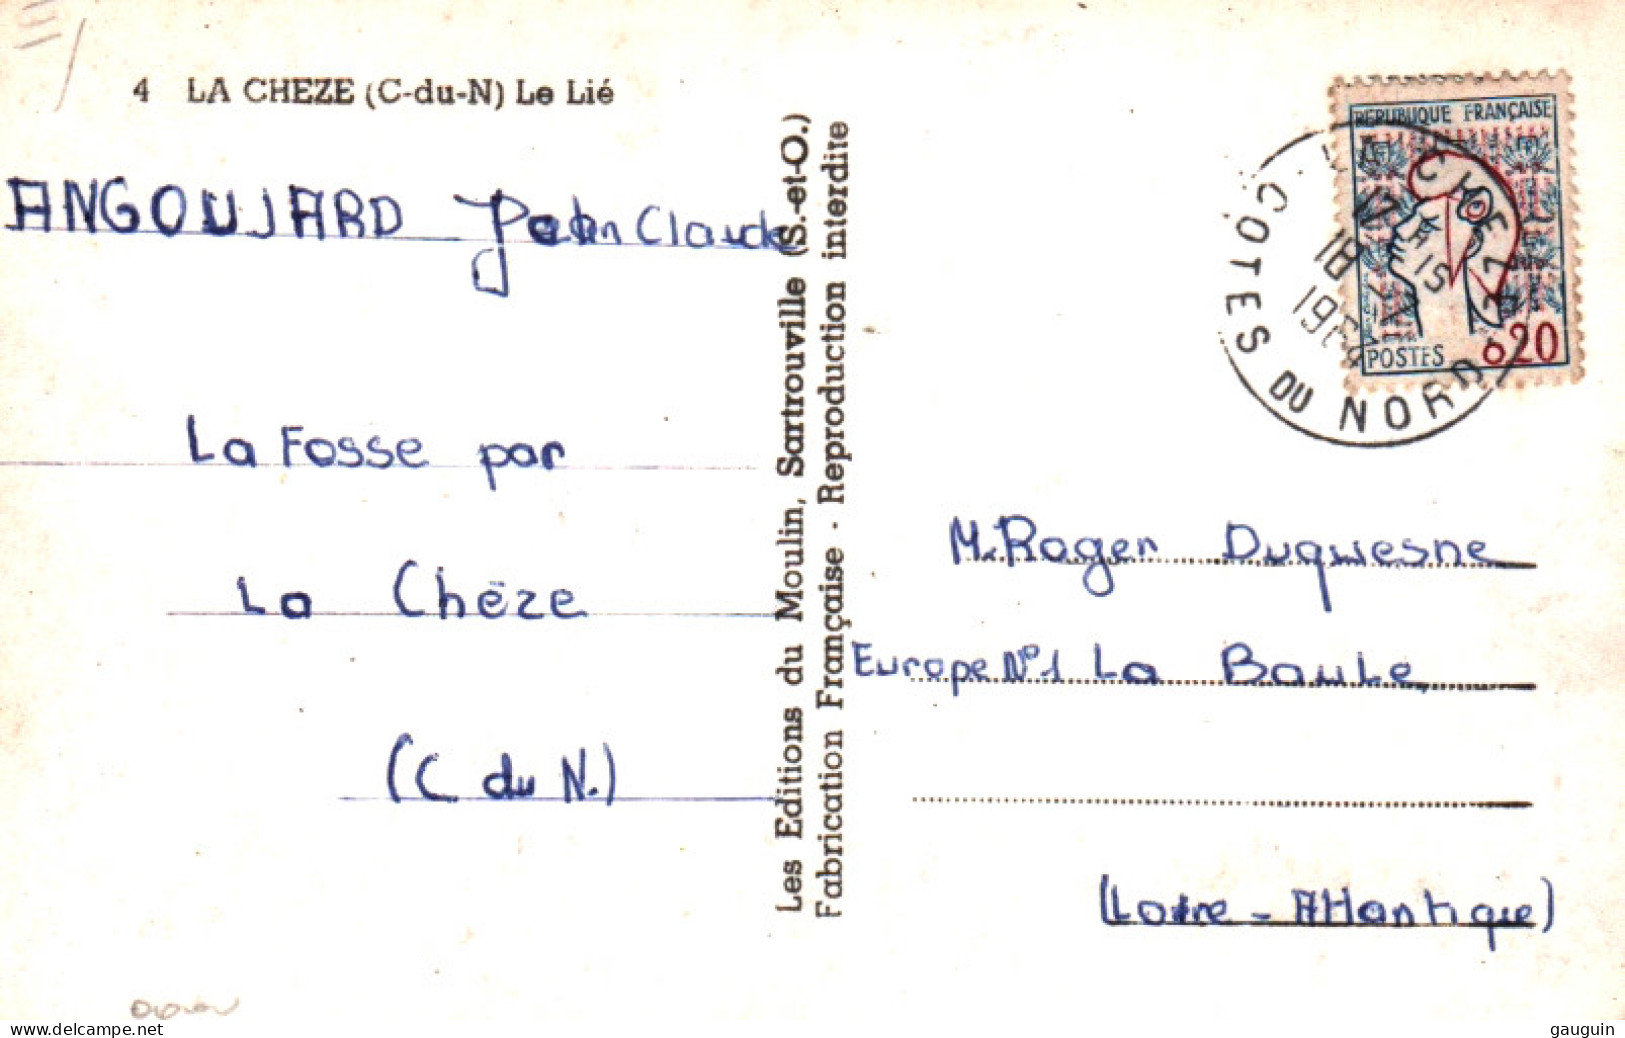 4 LA CHEZE (C-du-N) Le Lié
ANGOUJARD Jean Claude
La Fosse par
La Chèze
(C du N.)
Les Editions du Moulin, Sartrouville (S.-et-O.)
Fabrication Française - Reproduction interdite
REPUBLIQUE FRANÇAISE
POSTES 0,20
LA CHEZE
COTES DU NORD
M. Roger Duquesne
Europe N°1 La Baule
(Loire-Atlantique)
www.delcampe.net
gauguin